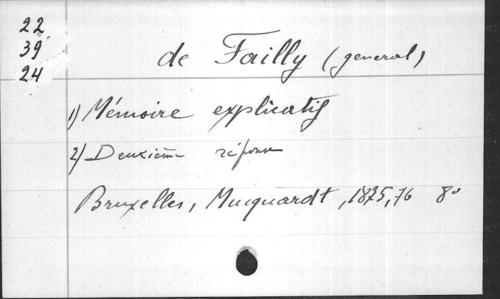 22
39
24
de Failly (general)
1) Mémoire explicatif
2) Deuxième réponse
Bruxelles, Muquardt, 1875,76 8°